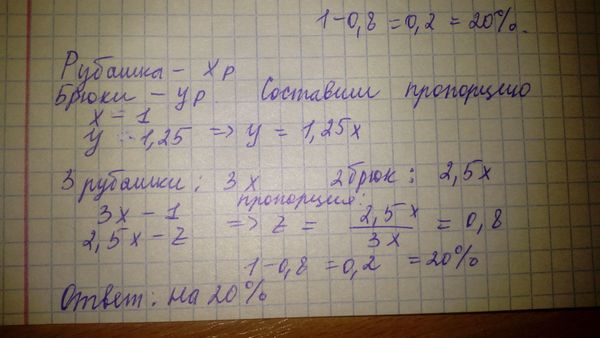 1-0,8 = 0,2 = 20%.
Рубашка - x р
Брюки - y р. Составим пропорцию
x - 1
y - 1,25 => y = 1,25x
3 рубашки: 3x 2 брюк: 2,5x
пропорция:
3x - 1
2,5x - z => z = 2,5x / 3x = 0,8
1-0,8 = 0,2 = 20%
Ответ: на 20%